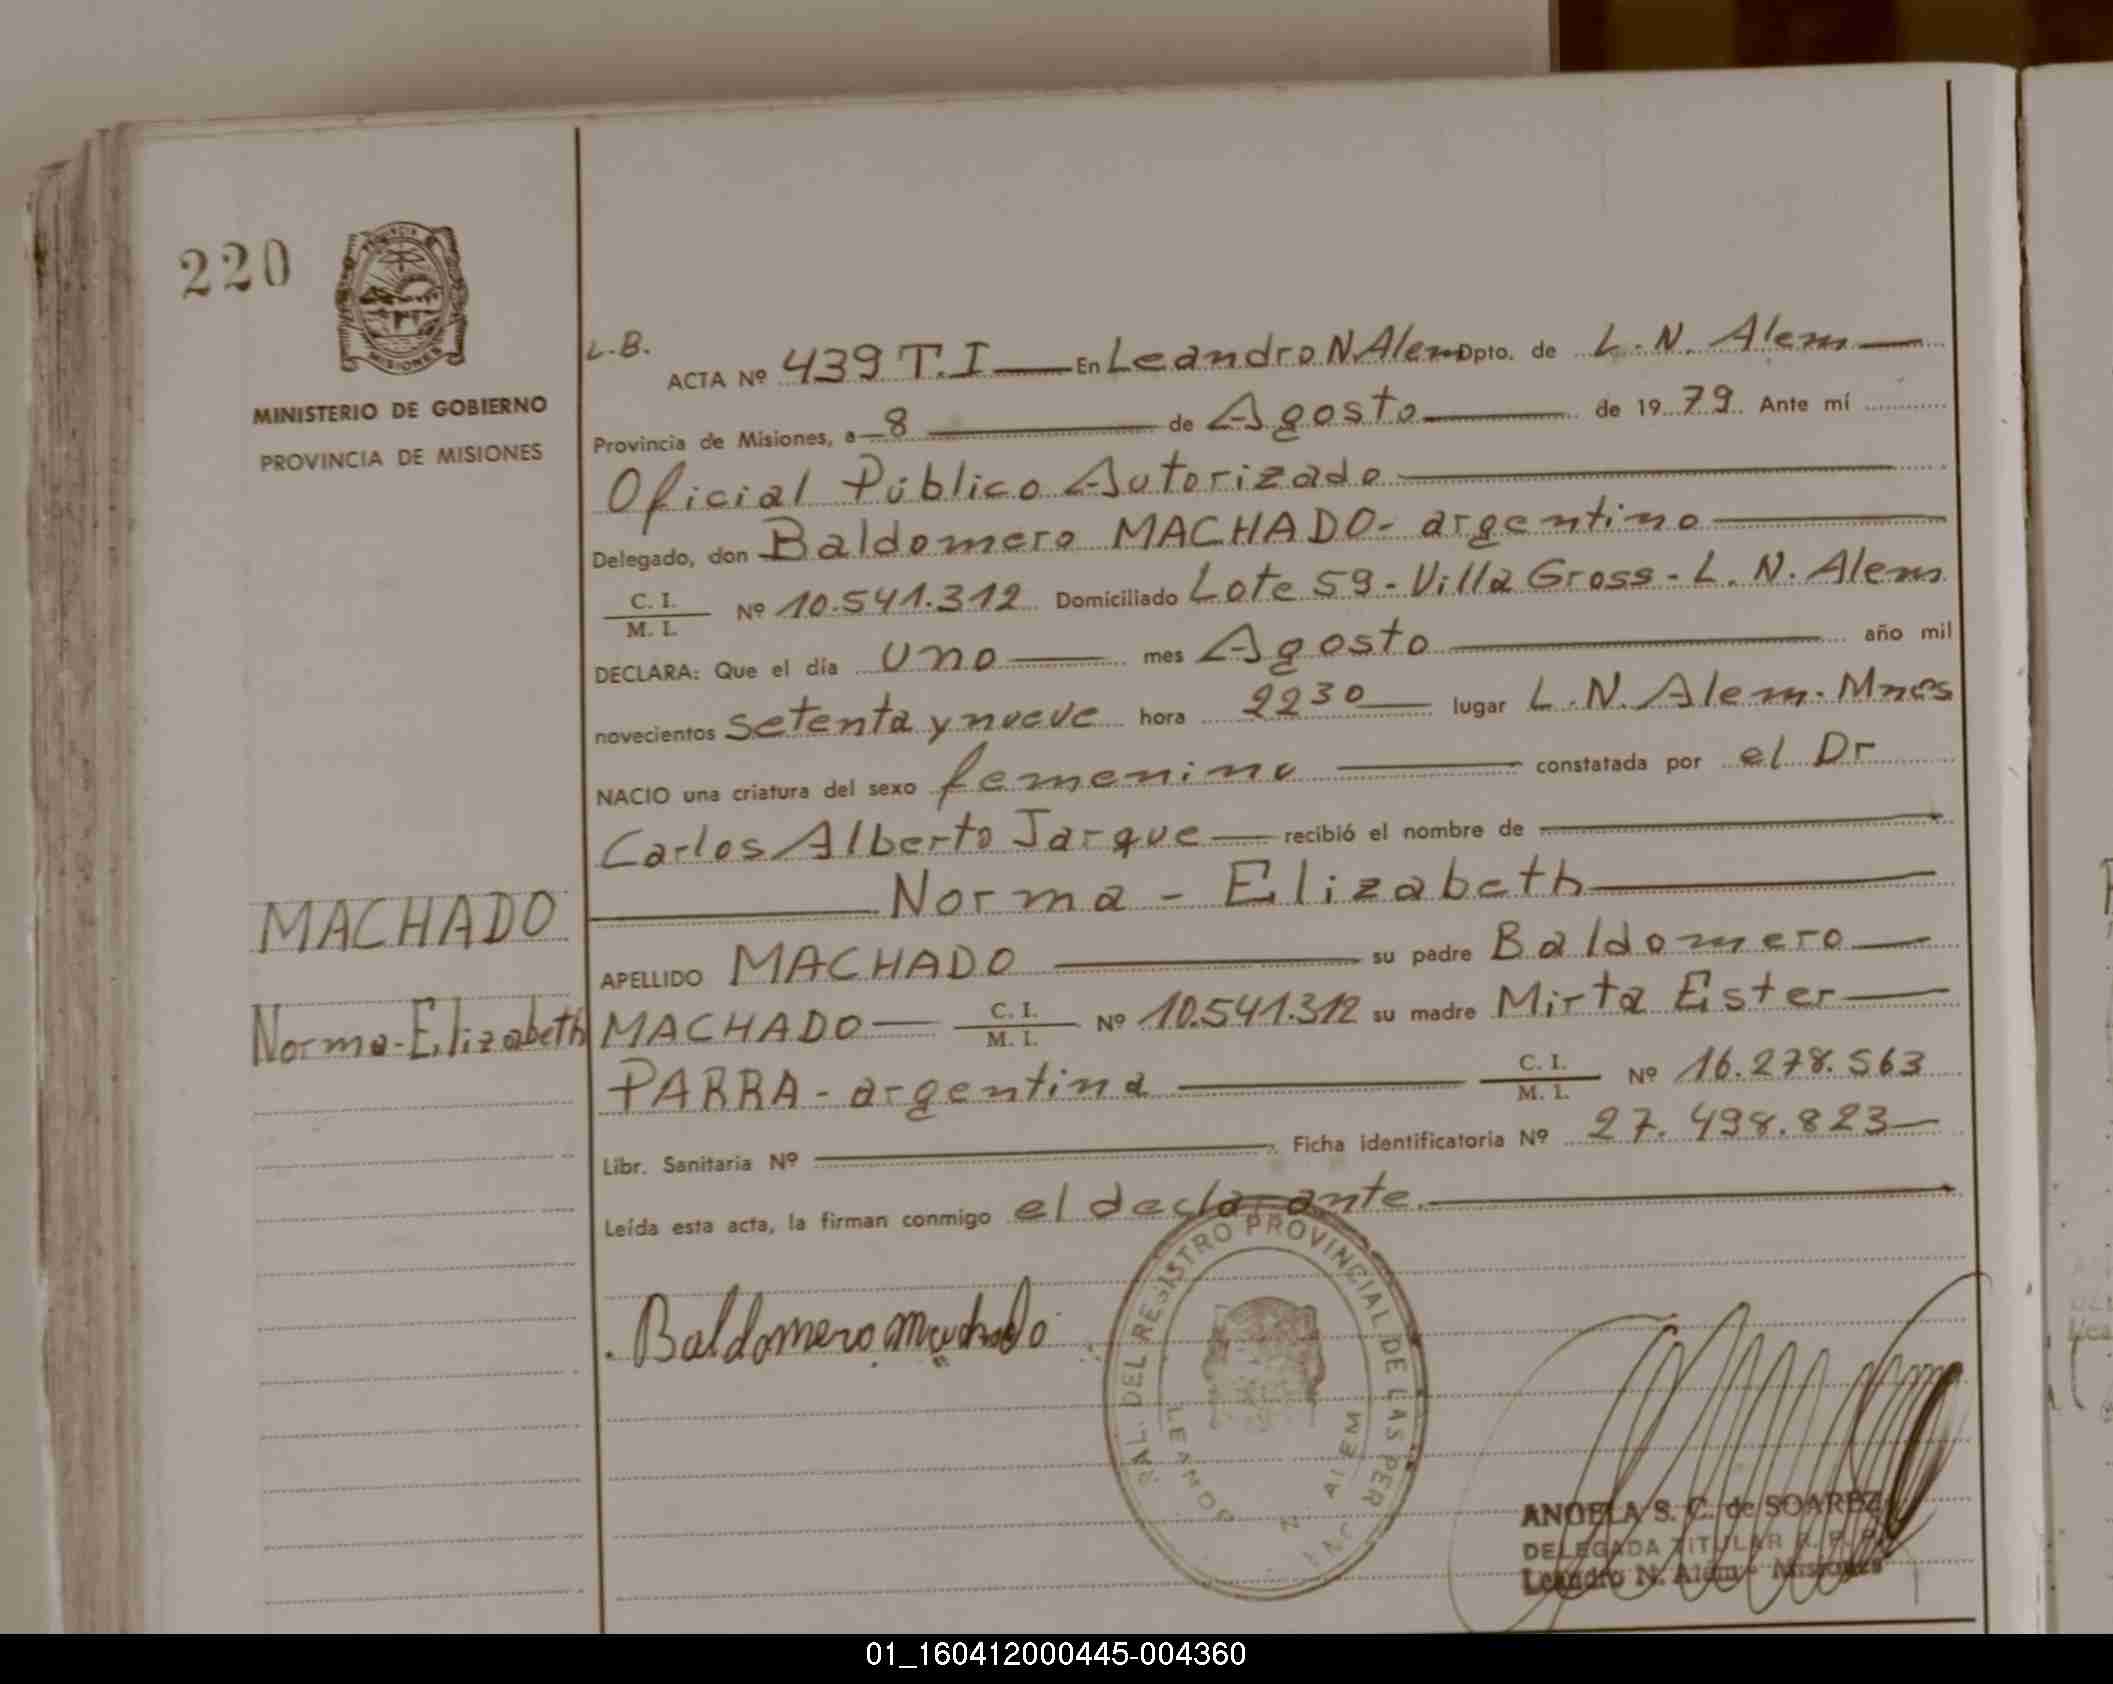 220
PROVINCIA
MISIONES
MINISTERIO DE GOBIERNO
PROVINCIA DE MISIONES
MACHADO
Norma-Elizabeth
L.B.
ACTA Nº 439 T.I — En Leandro N. Alem Dpto. de L. N. Alem —
Provincia de Misiones, a — 8 — de Agosto — de 19 79. Ante mí
Oficial Público Autorizado —
Delegado, don Baldomero MACHADO - argentino —
C. I. / M. I. Nº 10.541.312 Domiciliado Lote 59 - Villa Gross - L. N. Alem
DECLARA: Que el día uno — mes Agosto — año mil
novecientos setenta y nueve hora 22 30 — lugar L. N. Alem. Mnes
NACIO una criatura del sexo femenino — constatada por el Dr
Carlos Alberto Jarque — recibió el nombre de —
— Norma - Elizabeth —
APELLIDO MACHADO — su padre Baldomero —
MACHADO — C. I. / M. I. Nº 10.541.312 su madre Mirta Ester —
PARRA - argentina — C. I. / M. I. Nº 16.278.563
Libr. Sanitaria Nº — Ficha identificatoria Nº 27.498.823 —
Leída esta acta, la firman conmigo el declarante. —
Baldomero Machado
DEL REGISTRO PROVINCIAL DE LAS PER
LEANDRO N ALEM
ANGELA S. C. de SOAREZ
DELEGADA TITULAR R. P. P.
Leandro N. Alem - Misiones
01_160412000445-004360